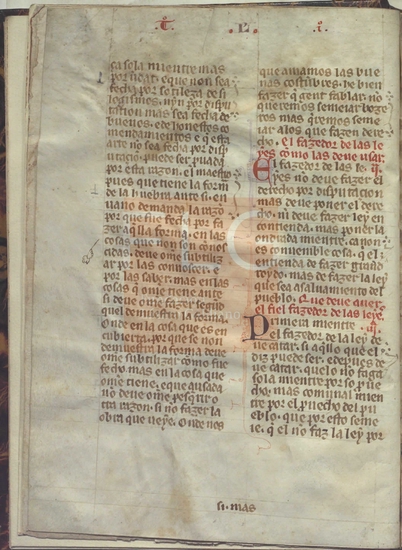 .T. L. i.
ça sola mientre mas
por uidat. eque non sea
fecha por sotileza de si
logismos. nyn por dispu
tation mas sea fecha de
buenos. e de honestos co
mendamientos e q̃ esta
arte no sea fecha por dis
putaçio. puede ser puada
por esta razon. el maestro
pues que tiene la form
de la huebra ante si. en
uano demanda la razõ
por que fue fecha por fa
zer aq̃lla forma. en las
cosas que non son conos
cidas. deue ome subtiliz
ar por las connoscer. e
por las saber. mas en las
cosas q̃ ome tiene ante
si deue ome fazer segũd
quel demuestra la forma.
Onde en la cosa que es en
cubierta. por que se non
demuestra la forma deue
ome subtilizar cõmo fue
fecho. mas en la cosa que
ome tiene. e que a usada
no deue ome pesq̃rir o
tra razon. si no fazer la
obra que ueye. Onde nos
que amamos las bue
nas costũbres. he bien
fazer q̃ gent fablar. no
queremos semeiar boze
ros mas q̃remos seme
iar alos que fazen dere
cho. El fazedor de las le
yes cõmo las deue usar.
El fazedor de las le
yes no deue fazer el
derecho por disputacion
mas deue poner el dere
cho. ni deue fazer ley en
contienda. mas poner la
ondrada mientre. ca non
es conuenible cosa. q̃ el
entienda de fazer grãnd
roydo. mas de fazer la ley
que sea a saluamiento del
pueblo. Que deue auer
el fiel fazedor de las leyes.
Primera mientre
el fazedor de la ley de
ue catar. si aquello que el
diz puede ser. e depues de
ue catar. quelo no faga
sola mientre por so pue
cho. mas comunal mien
tre por el puecho del pu
eblo. que por esto seme
ie. q̃ el no faz la ley por
si. mas